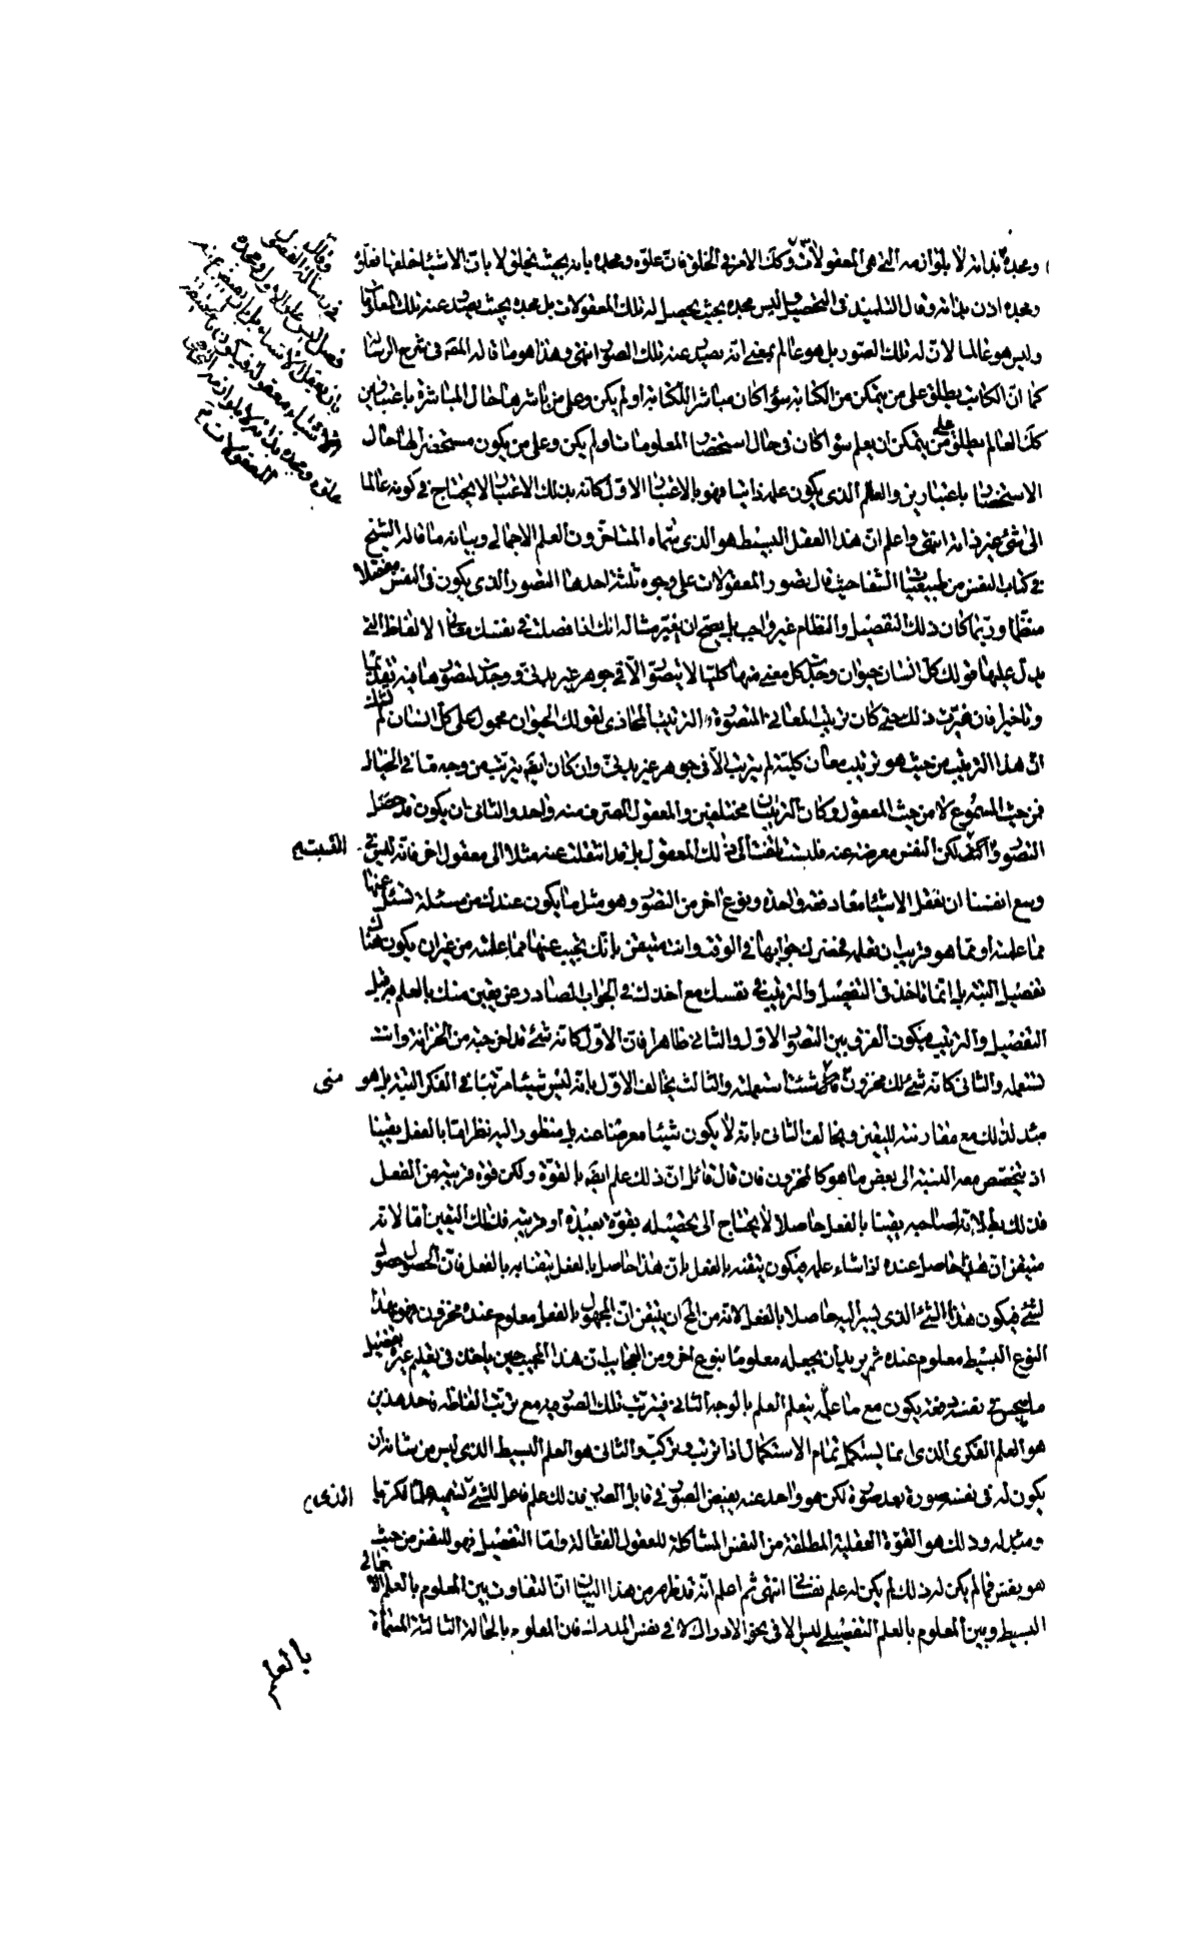 ومجده بذاته لا بلوازمه التي هي المعقولات وكذلك الامر في الخلق فان علوه ومجده بانه بحيث يخلق لا بان الاشياء خلقها فعلوه
ومجده اذن بذاته وقال التلميذ في التحصيل وليس مجده بحيث يحصل له تلك المعقولات بل مجده بحيث يصدر عنه تلك المعقولات
وليس هو عالما لان له تلك الصور بل هو عالم بمعنى انه يصدر عنه تلك الصور انتهى وهذا هو ما قاله المص في شرح الرسالة
كما ان الكاتب يطلق على من يتمكن من الكتابة سواء كان مباشرا للكتابة او لم يكن وعلى من باشرها حال المباشرة باعتبارين
كذلك العالم يطلق على من يتمكن ان يعلم سواء كان في حال استحضار المعلومات او لم يكن وعلى من يكون مستحضرا لها حال
الاستحضار باعتبارين والعالم الذي يكون علمه ذاتيا فهو بالاعتبار الاول كانه بذلك الاعتبار لا يحتاج في كونه عالما
الى شئ غير ذاته انتهى واعلم ان هذا العقل البسيط هو الذي سماه المتاخرون العلم الاجمالي وبيانه ما قاله الشيخ
في كتاب النفس من طبيعيات الشفا حيث قال تصور المعقولات على وجوه ثلثة احدها التصور الذي يكون في النفس مفصلا
منظما وربما كان ذلك التفصيل والنظام غير واجب بل يصح ان يغير مثاله انك اذا فصلت في نفسك معاني الالفاظ التي
يدل عليها قولك كل انسان حيوان وجدت كل معنى منها كليا لا يتصور الا في جوهر غير بدني ووجدت لتصورها فيه تقديما
وتاخيرا فان غيرت ذلك حتى كان ترتيب المعاني المتصورة الترتيب المحاذي لقولك الحيوان محمول على كل انسان لم تشك
ان هذا الترتيب من حيث هو ترتيب معان كلية لم يترتب الا في جوهر غير بدني وان كان ايضا يترتب من وجه ما في الخيال
فمن حيث المسموع لا من حيث المعقول وكان الترتيبان مختلفين والمعقول الصرف منه واحد والثاني ان يكون قد حصل
التصور واكتسب لكن النفس معرضة عنه فليست تلتفت الى ذلك المعقول بل قد انتقلت عنه مثلا الى معقول اخر فانه ليس في
وسع انفسنا ان نعقل الاشياء معا دفعة واحدة ونوع اخر من التصور وهو مثل ما يكون عندك من مسئلة تسئل عنها
مما علمته او مما هو قريب ان تعلمه فحضرك جوابها في الوقت وانت متيقن بانك تجيب عنها مما علمته من غير ان يكون هناك
تفصيل البتة بل انما تاخذ في التفصيل والترتيب في نفسك مع اخذك في الجواب الصادر عن يقين منك بالعلم به قبل
التفصيل والترتيب فيكون الفرق بين التصور الاول والثاني ظاهرا فان الاول كانه شئ قد اخرجته من الخزانة وانت
تستعمله والثاني كانه شئ لك مخزون متى شئت استعملته والثالث يخالف الاول بانه ليس شيئا مرتبا في الفكر البتة بل هو
مبدء لذلك مع مقارنته لليقين ويخالف الثاني بانه لا يكون شيئا معرضا عنه بل منظور اليه نظرا ما بالفعل يقينا
اذ يتخصص معه النسبة الى بعض ما هو كالمخزون فان قال قائل ان ذلك علم ايضا بالقوة ولكن قوة قريبة من الفعل
فذلك بط لانه لصاحبه يقينا بالفعل حاصلا لا يحتاج الى تحصيله بقوة بعيدة او قريبة فذلك اليقين اما لانه
متيقن ان هذا حاصل عنده اذا شاء علمه فيكون تيقنه بالفعل بان هذا حاصل بالفعل تيقنا به بالفعل فان الحصول حصول
لشئ فيكون هذا الشئ الذي يشير اليه حاصلا بالفعل لانه من المح ان يتيقن ان المجهول بالفعل معلوم عنده مخزون فهو بهذا
النوع البسيط معلوم عنده ثم يريد ان يجعله معلوما بنوع اخر ومن العجايب ان هذا المجيب حين ياخذ في تعليم غيره تفصيل
ما هجس في نفسه دفعة يكون مع ما علمه يتعلم العلم بالوجه الثاني فيترتب تلك الصور فيه مع ترتب الفاظه فاحد هذين
هو العلم الفكري الذي انما يستكمل تمام الاستكمال اذا ترتب وتركب والثاني هو العلم البسيط الذي ليس من شانه ان
يكون له في نفسه صورة بعد صورة لكن هو واحد عنه يفيض الصور في قابل الصور فذلك علم فاعل للشئ الذي نسميه علما فكريا
ومبدء له وذلك هو القوة العقلية المطلقة من النفس المشاكلة للعقول الفعالة واما التفصيل فهو للنفس من حيث
هو نفس فما لم يكن له ذلك لم يكن له علم نفساني انتهى ثم اعلم انه قد ظهر من هذا البيان ان التفاوت بين المعلوم بالعلم الاجمالي
البسيط وبين المعلوم بالعلم التفصيلي ليس الا في نحو الادراك لا في نفس المدرك فان المعلوم بالحالة الثالثة المسماة
بالعلم
وقال
في رسالة الفصول
فصل ليس علو الاول ومجده
علوه ومجده بذاته لا بلوازمه التي هي
المعقولات
متى
الذي